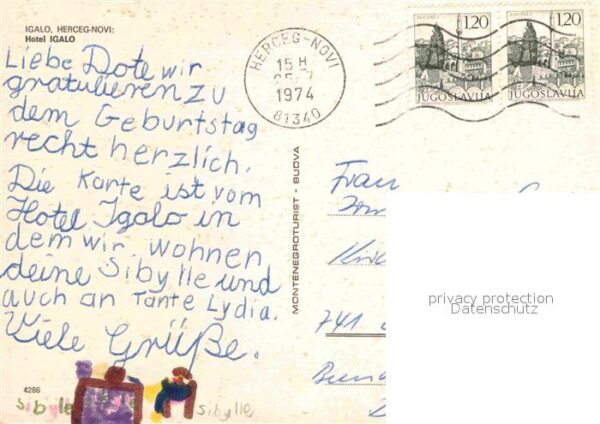 IGALO, HERCEG-NOVI:
Hotel IGALO
Liebe Dote wir
gratulieren zu
dem Geburtstag
recht herzlich.
Die Karte ist vom
Hotel Igalo in
dem wir wohnen
deine Sibylle und
auch an Tante Lydia.
Viele Grüße.
4286
sibylle
sibylle
MONTENEGROTURIST - BUDVA
HERCEG-NOVI
15 H
1974
81340
1,20
JUGOSLAVIJA
1,20
JUGOSLAVIJA
Frau
741
privacy protection
Datenschutz